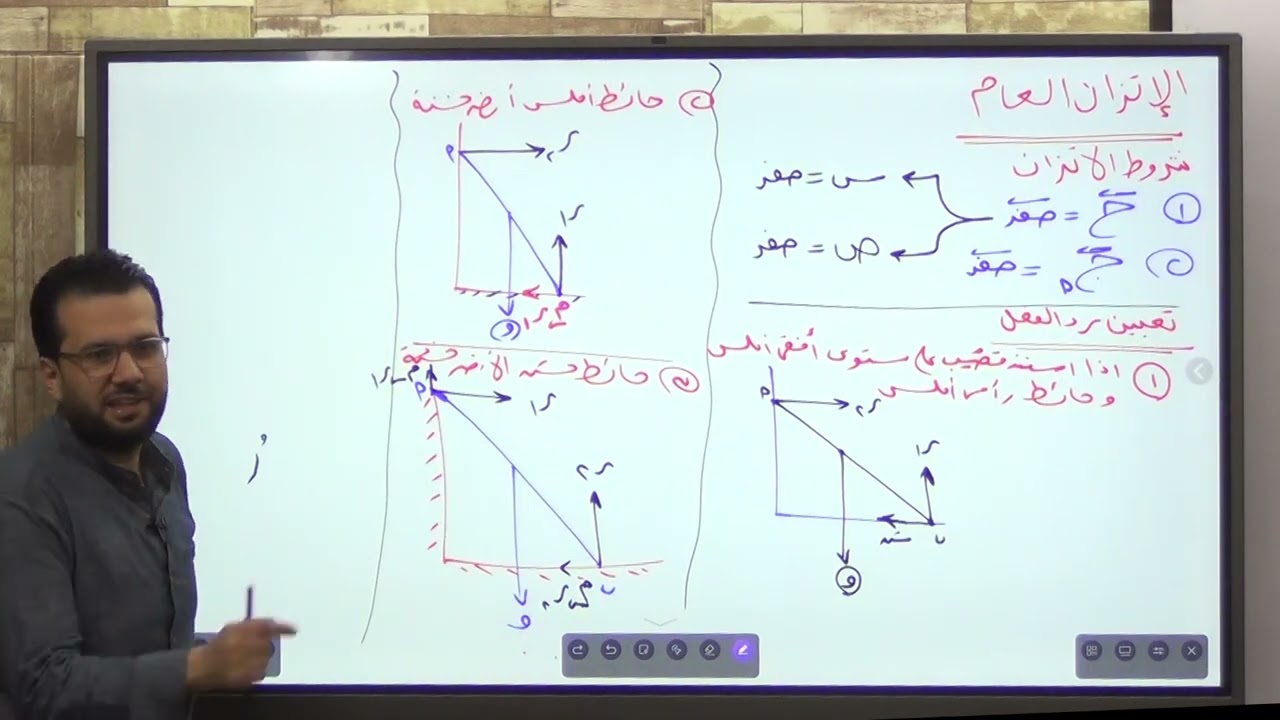 الإتزان العام
شروط الاتزان
١ ح = صفر
س = صفر
ص = صفر
٢ ج = صفر
تعيين رد الفعل
١ اذا استند قضيب على مستوى أفقى أملس
و حائط رأسى أملس
م
ر٢
ر١
ب
شد
و
٢ حائط أملس أرضه خشنة
م
ر٢
ر١
م ر١
و
٣ حائط خشن الأرض خشنة
م ر١
م
ر١
ر٢
م ر٢
ب
و